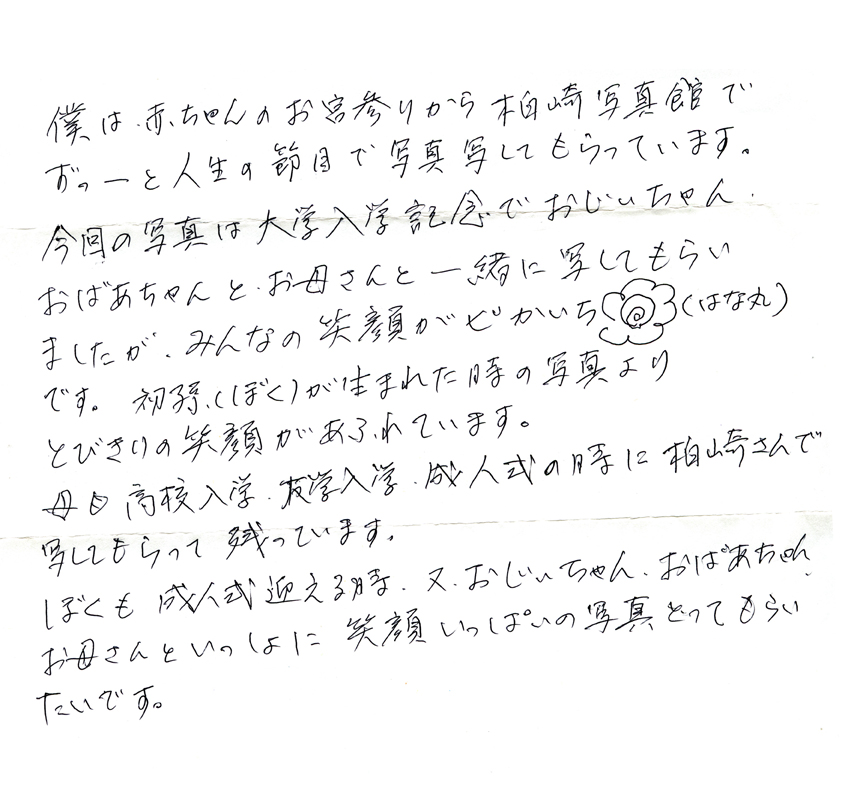 僕は、赤ちゃんのお宮参りから柏崎写真館で
ずっーと人生の節目で写真写してもらっています。
今回の写真は大学入学記念でおじぃちゃん、
おばあちゃんと、お母さんと一緒に写してもらい
ましたが、みんなの笑顔がピかいち(はな丸)
です。初孫、(ぼく)が生まれた時の写真より
とびきりの笑顔があふれています。
母も高校入学、大学入学、成人式の時に柏崎さんで
写してもらって残っています。
ぼくも成人式迎える時、又、おじぃちゃん、おばあちゃん、
お母さんといっしょに笑顔いっぱいの写真とってもらい
たいです。